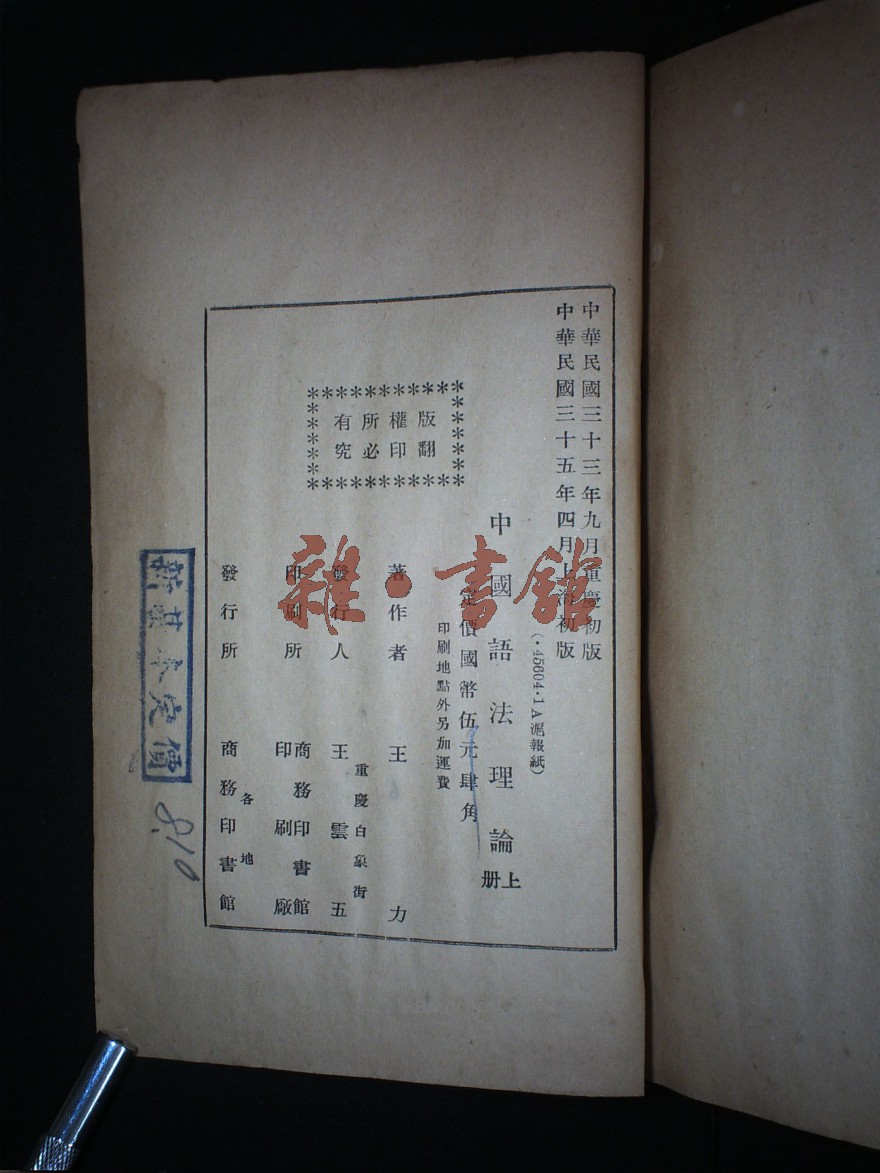 中華民國三十三年九月重慶初版
中華民國三十五年四月上海初版
(·45604·1A滬報紙)
中國語法理論上册
定價國幣伍元肆角
印刷地點外另加運費
版權所有
翻印必究
著作者 王力
重慶白象街
發行人 王雲五
印刷所 商務印書館
印刷廠
各地
發行所 商務印書館
雜·書館
定價
8.10